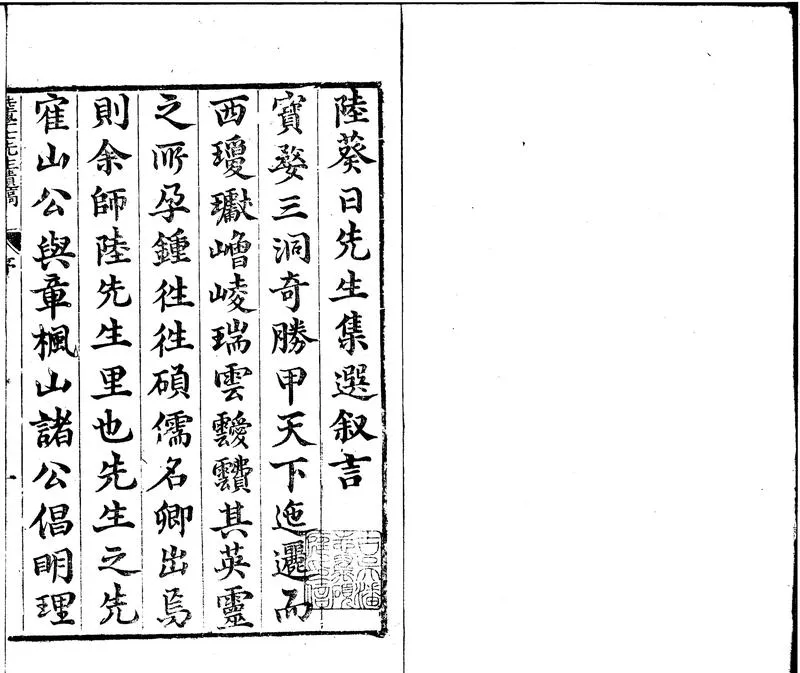 陸葵日先生集選叙言
寳婺三洞奇勝甲天下迤邐而
西瓊巘嶒崚瑞雲靉靅其英靈
之所孕鍾徃徃碩儒名卿出焉
則余師陸先生里也先生之先
隺山公與章楓山諸公倡明理
序